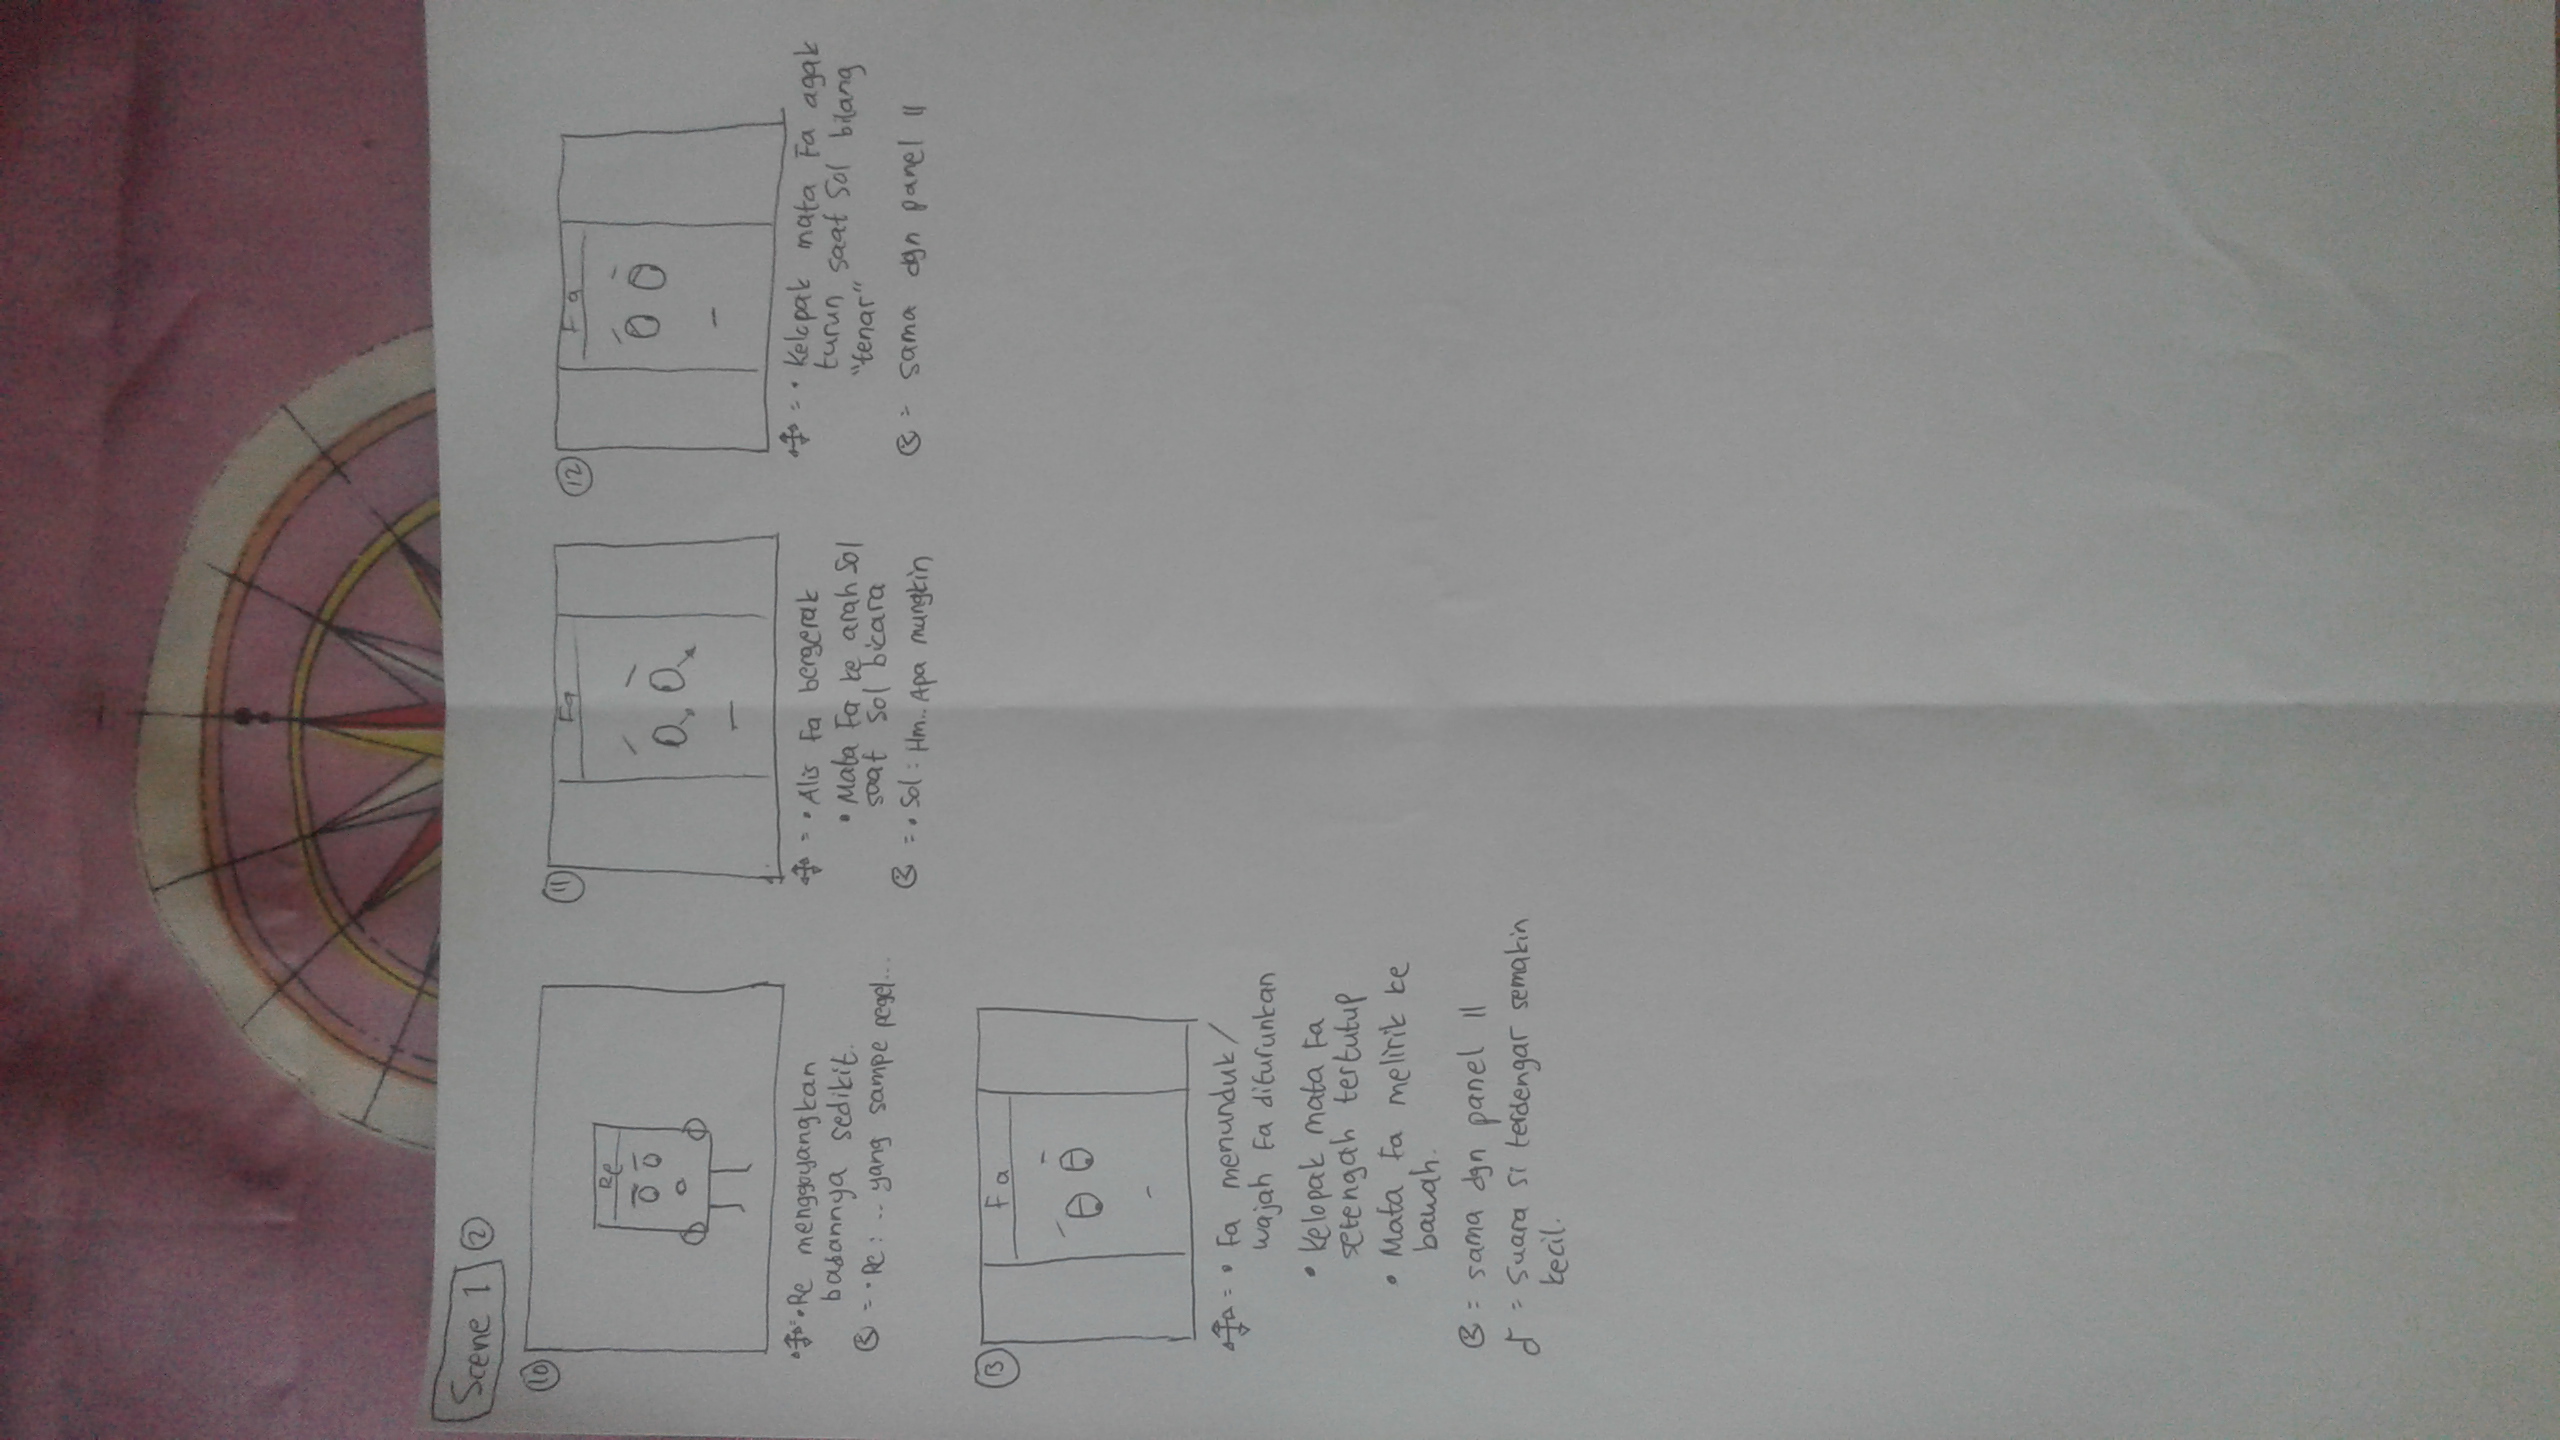 Scene 1 ②
⑩
Re
Re menggoyangkan
badannya sedikit.
= • Re : .. yang sampe pegel...
⑪
Fa
= • Alis Fa bergerak
• Mata Fa ke arah Sol
saat Sol bicara
= • Sol : Hm.. Apa mungkin
⑫
Fa
= • Kelopak mata Fa agak
turun saat Sol bilang
"tenar"
= sama dgn panel 11
⑬
Fa
= • Fa menunduk/
wajah Fa diturunkan
• Kelopak mata Fa
setengah tertutup
• Mata Fa melirik ke
bawah.
= sama dgn panel 11
= Suara Si terdengar semakin
kecil.